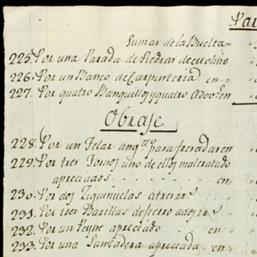 Par
Sumar de la Buelta
225. Por una Parada de Piedras de molino
226. Por un Banco de Carpinteria en
227. Por quatro Banquillos y quatro
Obraje
228. Por un Telar para frezadas en
229. Por tres Tornos uno de ellos maltratado
apreciados en
230. Por dos
231. Por tres Barillas de fierro
232. Por un Peyne apreciado en
233. Por una apreciada en